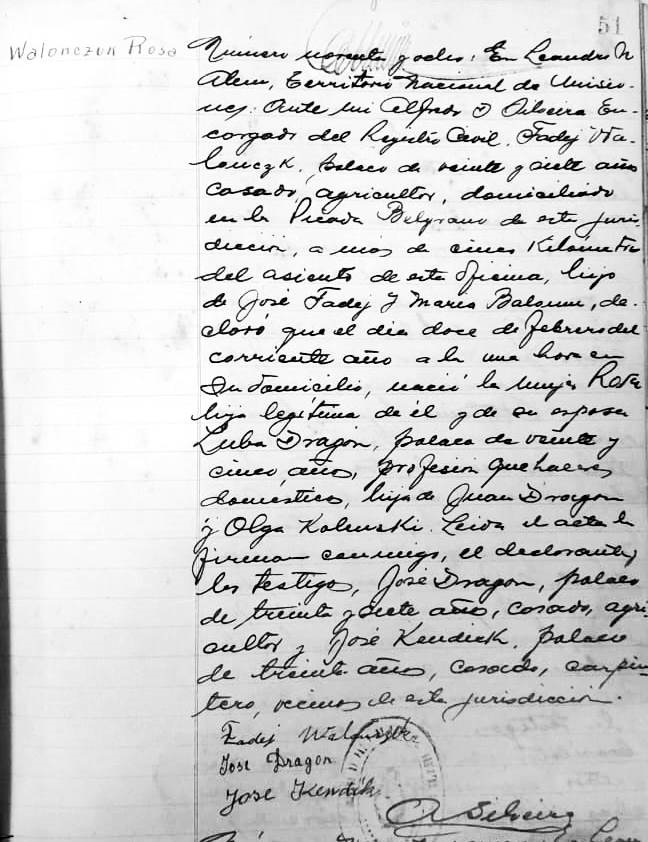 51
Walonczuk Rosa
Número noventa y ocho: En Leandro N
Alem, Territorio Nacional de Misio-
nes. Ante mi Alfredo D Silveira En-
cargado del Registro Civil, Fadej Wa-
lonczk, polaco de veinte y siete años
casado, agricultor, domiciliado
en la Picada Belgrano de esta juris-
dicción, a mas de cinco Kilómetros
del asiento de esta Oficina, hijo
de José Fadej y Maria, de-
claró que el dia doce de febrero del
corriente año a la una hora en
su domicilio, nació la mujer Rosa
hija legítima de él y de su esposa
Luba Dragon, polaca de veinte y
cinco años, profesión quehaceres
domésticos, hija de Juan Dragon
y Olga. Leida el acta la
firman conmigo, el declarante y
los testigos, José Dragon, polaco
de treinta y siete años, casado, agri-
cultor y José Kendick, polaco
de treinta años, casado, carpin-
tero, vecinos de esta jurisdicción.
Fadej
Jose Dragon
Jose Kendik
A Silveira